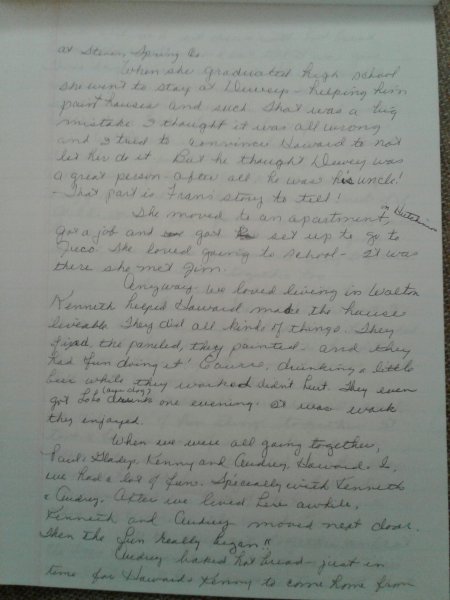 at Steven, Spring Co.
When she graduated high school
she went to stay at Dewey's - helping him
paint houses and such. That was a big
mistake I thought it was all wrong
and I tried to convince Howard to not
let her do it. But he thought Dewey was
a great person - after all he was his uncle!
That part is Frans story to tell!
She moved to an apartment, in Hutchinson
got a job and got set up to go to
Juco. She loved going to school - It was
there she met Jim.
Anyway, we loved living in Walton
Kenneth helped Howard made the house
liveable. They did all kinds of things. They
the paneled, they painted - and they
had fun doing it! Course, drinking a little
beer while they worked didn't hurt. They even
got Lobo (our dog) drunk one evening. It was work
they enjoyed.
When we were all going together,
Paul & Gladys, Kenny and Audrey, Howard & I,
we had a lot of fun. Specially with Kenneth
& Audrey. After we lived here awhile,
Kenneth and Audrey moved next door.
Then the fun really began!!
Audrey baked hot bread - just in
time for Howard & Kenny to come home from